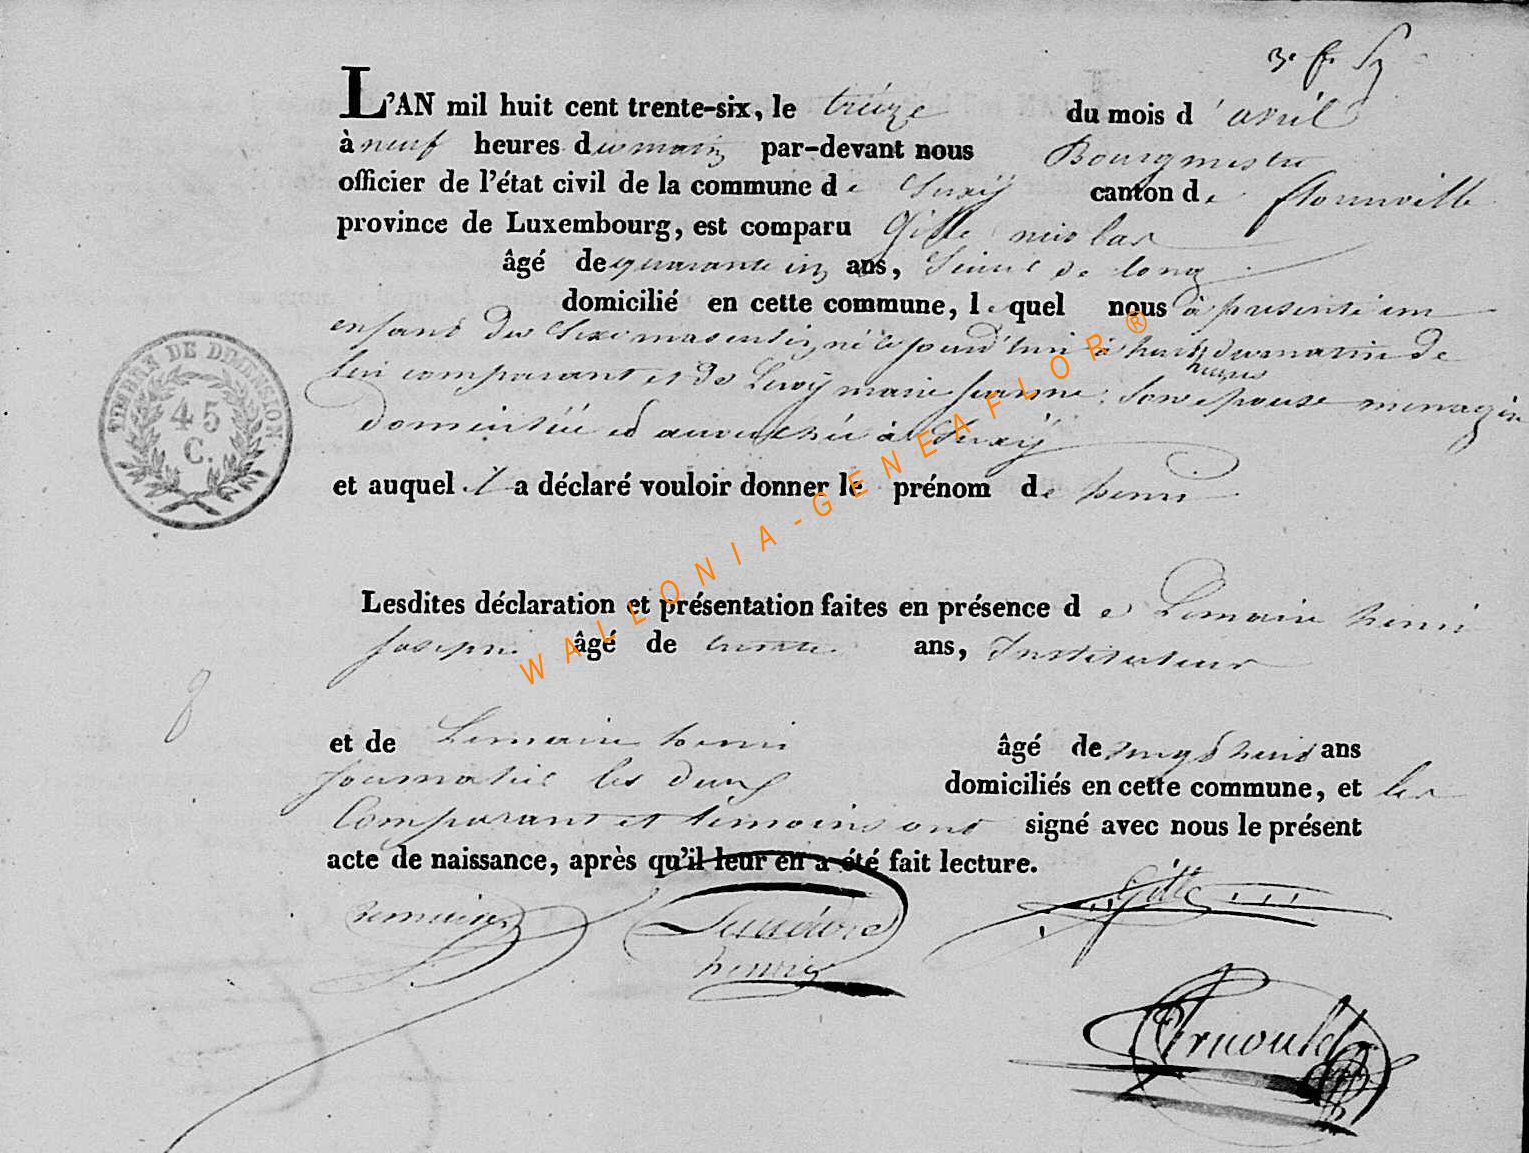 L'AN mil huit cent trente-six, le treize du mois d'avril
à neuf heures du matin par-devant nous Bourgmestre
officier de l'état civil de la commune de Suxÿ canton de florenville
province de Luxembourg, est comparu Gille nicolas
âgé de quarante cinq ans, Scieur de long
domicilié en cette commune, lequel nous à presenté un
enfant du Sexe masculin, né cejourd'hui à huit heures du matin de
lui comparant et de Leroÿ marie jeanne, Son epouse menagère
domiciliée et accouchée à Suxÿ
et auquel il a déclaré vouloir donner le prénom de henri
TIMBRE DE DIMENSION
45
C.
Lesdites déclaration et présentation faites en présence de Lemaire henri
joseph âgé de trente ans, Instituteur
et de henri âgé de vingt huit ans
journalier les deux domiciliés en cette commune, et les
Comparant et temoins ont signé avec nous le présent
acte de naissance, après qu'il leur en a été fait lecture.
Gille
henri
Arnould
WALLONIA-GENEAFLOR®